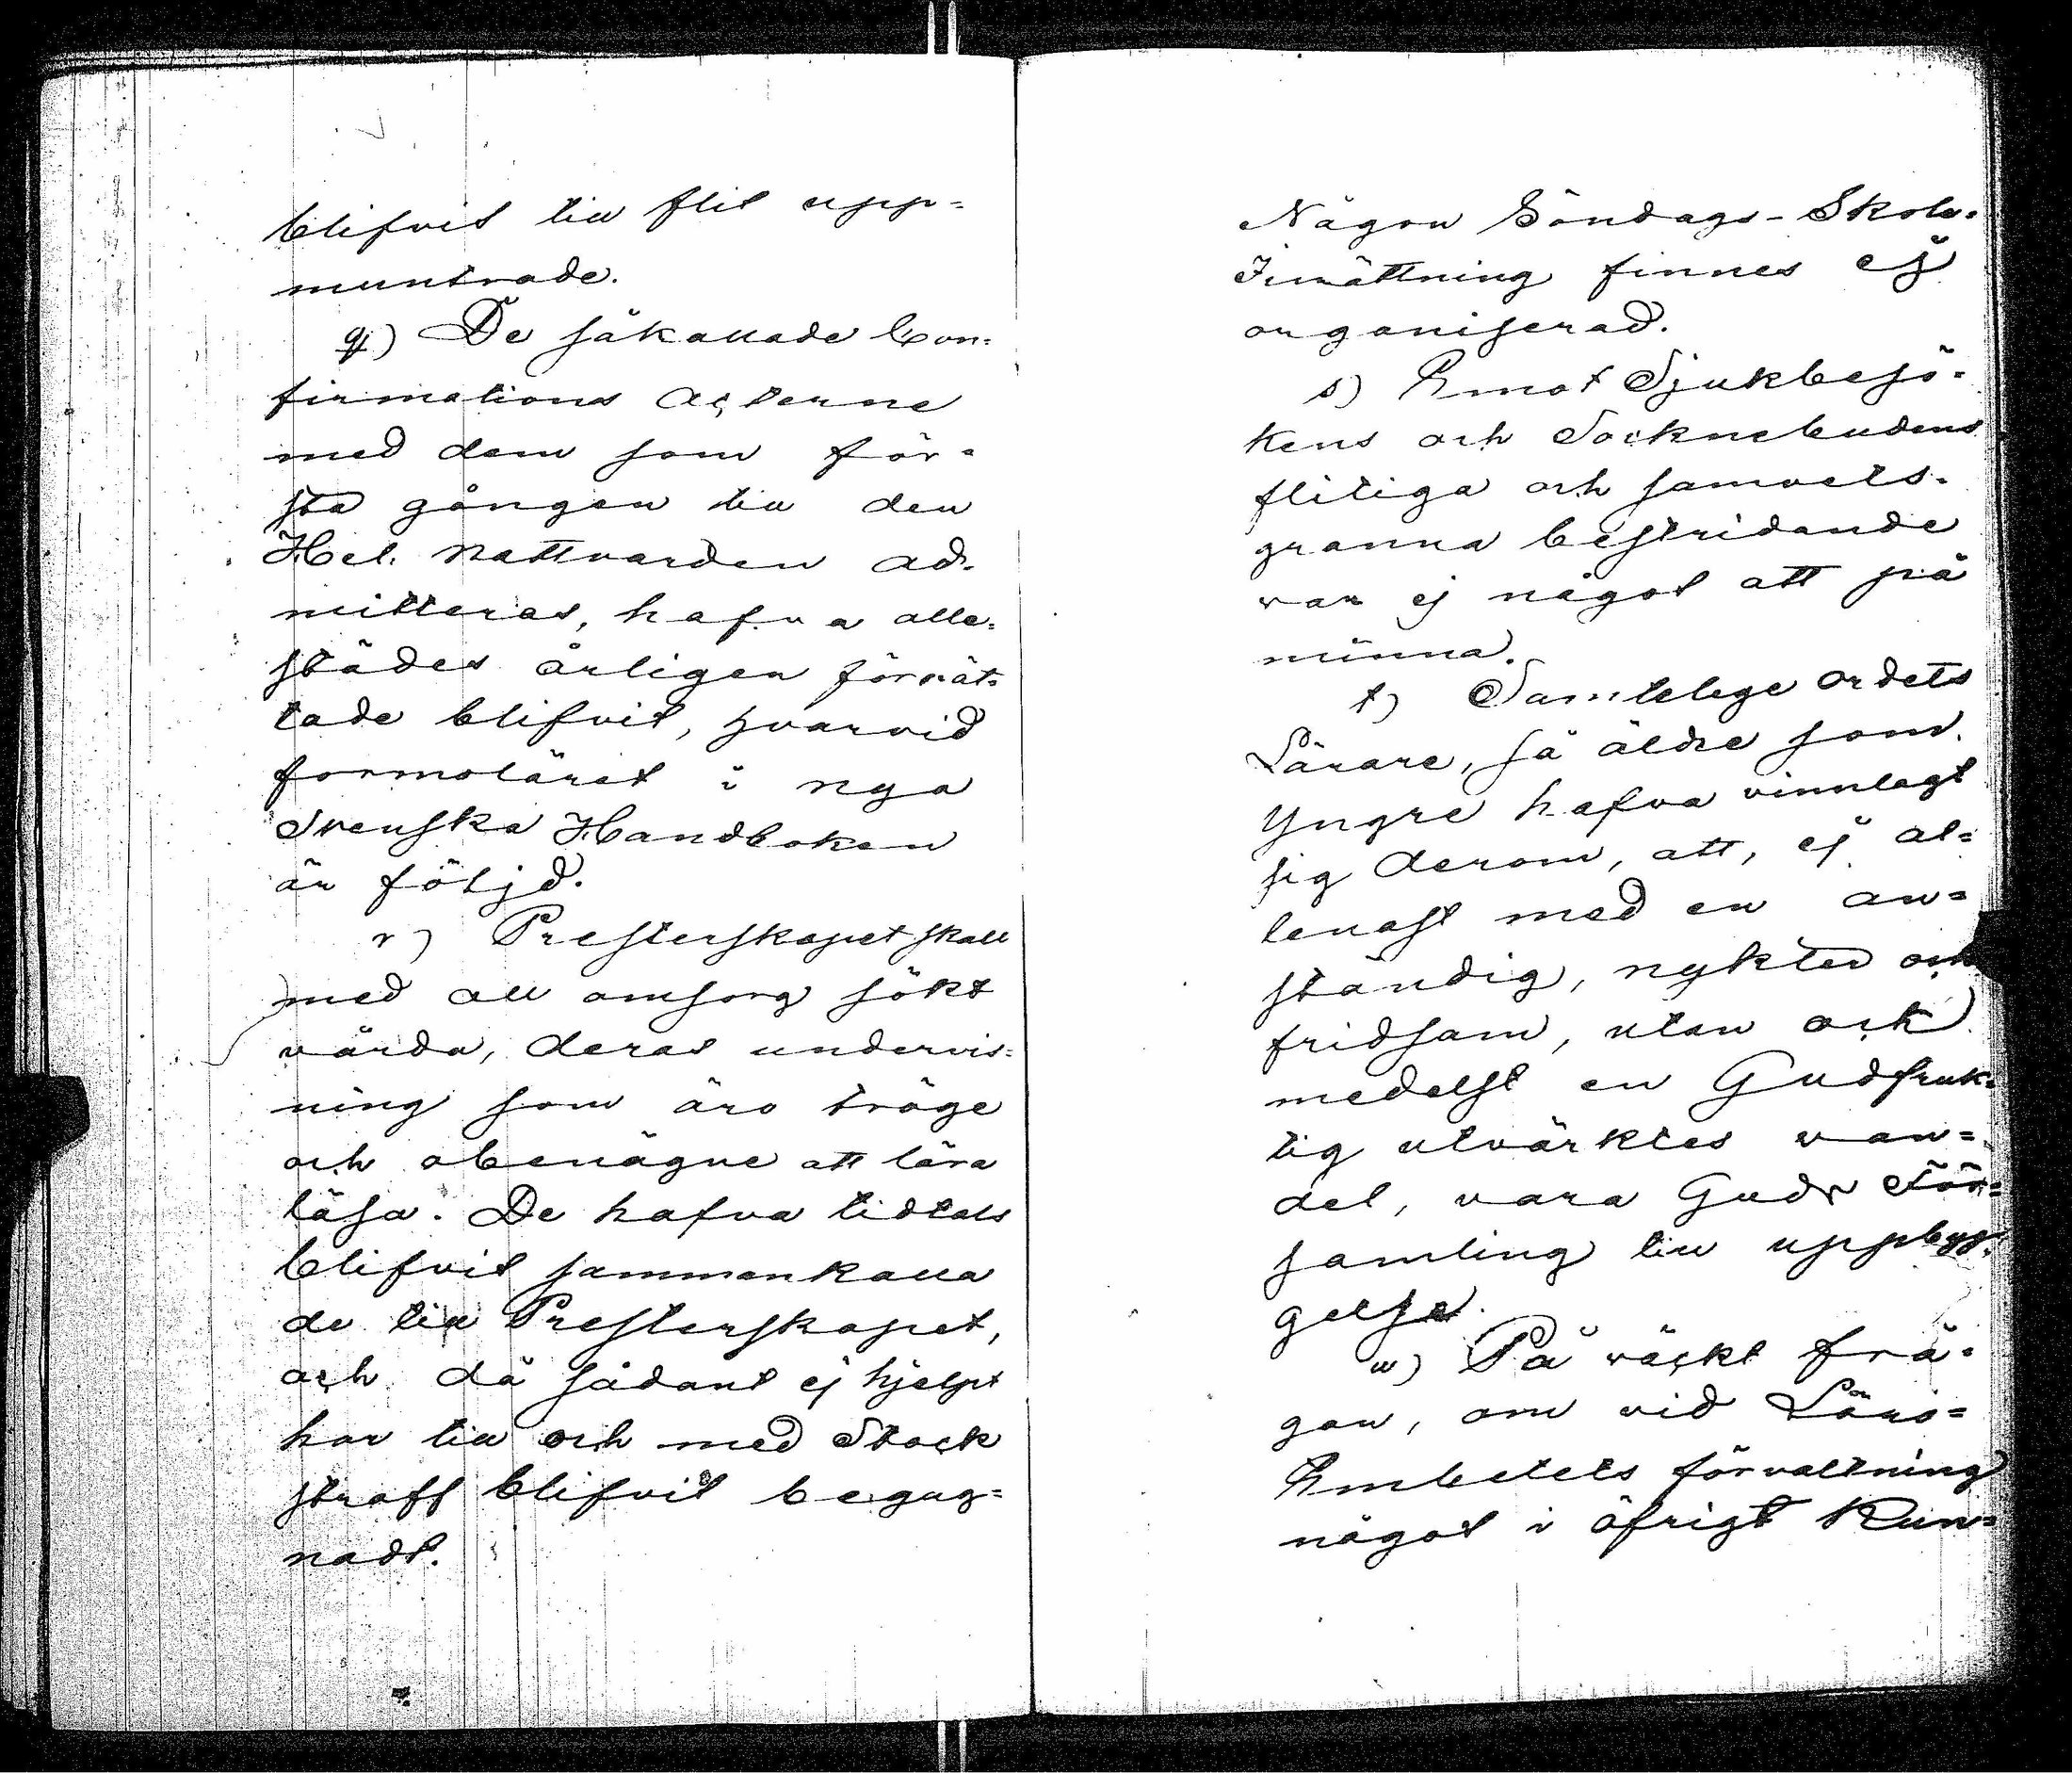 blifvit till flit upp=
muntrade.
q) De såkallade Con=
firmations Acterne
med dem som för=
sta gången till den
Hel. Nattvarden ad=
mitteras, hafva alle=
städes årligen förrät=
tade blifvit, hvarvid
formoläret i nya
Svenska Handboken
är följd.
r) Presterskapet skall
med all omsorg sökt
vårda, deras undervis=
ning som äro tröge
och obenägne att lära
läsa. De hafva tidtals
blifvit sammankalla
de till Presterskapet,
och då sådant ej hjelpt
har till och med Stock
straff blifvit begag=
nadt.
Någon Söndags-Skole=
Inrättning finnes ej
organiserad.
s) Emot Sjukbesö=
kens och Socknebudens
flitiga och samvets=
granna bestridande
var ej något att på
minna.
t) Samtelege ordets
Lärare, så äldre som
Yngre hafva vinnlagt
sig derom, att, ej al=
lenast med en an=
ständig, nykter och
fridsam, utan och
medelst en Gudfruk=
tig utvärktes van=
del, vara Guds För=
samling till uppbyg=
gelse.
u) På väckt frå=
gan, om vid Läro=
Embetets förvaltning
något i öfrigt kun=